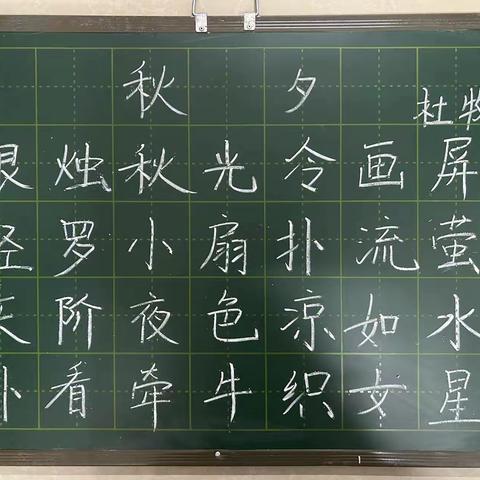 秋夕
杜
烛秋光冷画屏
罗小扇扑流萤
天阶夜色凉如水
看牵牛织女星